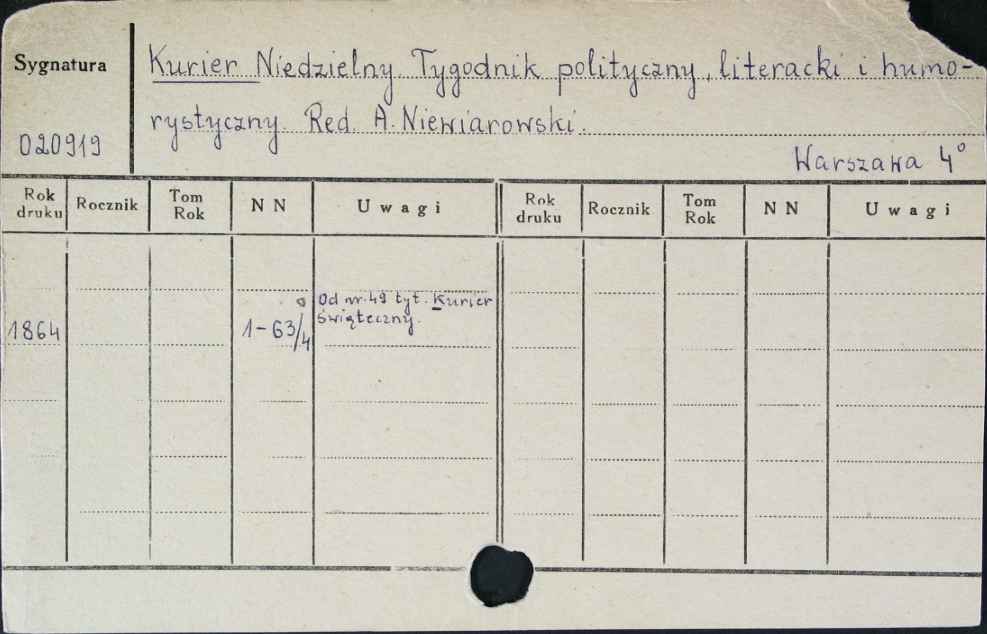 Sygnatura
020919
Kurier Niedzielny. Tygodnik polityczny, literacki i humo-
rystyczny. Red. A. Niewiarowski.
Warszawa 4°
Rok druku Rocznik Tom Rok N N Uwagi Rok druku Rocznik Tom Rok N N Uwagi
1864 1-63/4 Od nr. 49 tyt. Kurier
świąteczny.